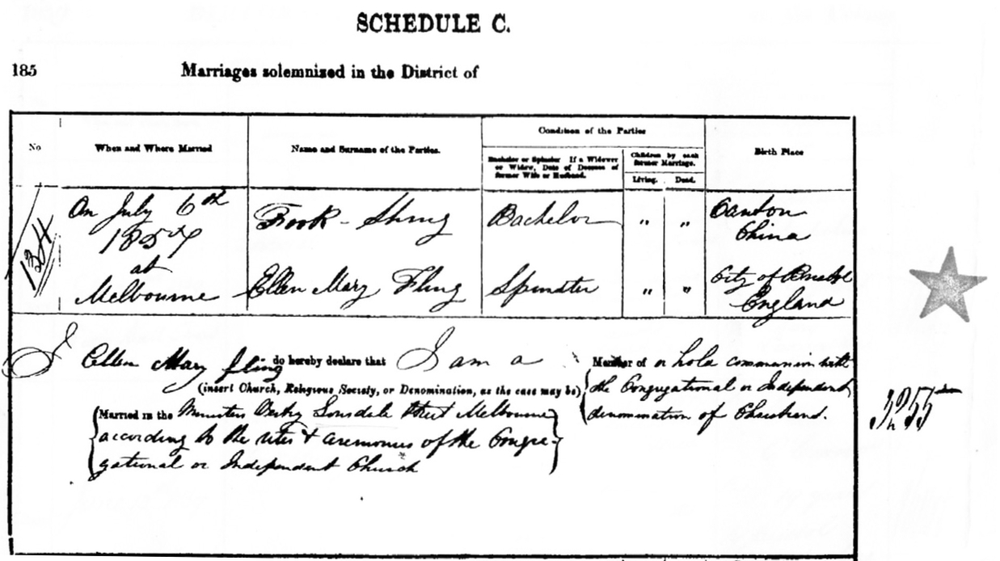 SCHEDULE C.
185 Marriages solemnized in the District of
No
When and Where Married
Name and Surname of the Parties.
Condition of the Parties
Bachelor or Spinster If a Widower or Widow, Date of Decease of former Wife or Husband.
Children by each former Marriage.
Living. Dead.
Birth Place
134
On July 6th
1857
at
Melbourne
Fook - Shing
Bachelor
" "
Canton
China
Ellen Mary Fling
Spinster
" "
City of Bristol
England
I Ellen Mary Fling do hereby declare that I am a Member of or hold communion with
(insert Church, Religious Society, or Denomination, as the case may be) the Congregational or Independent
denomination of
Married in the Lonsdale Street Melbourne
according to the rites & ceremonies of the Congre-
gational or Independent Church
3255